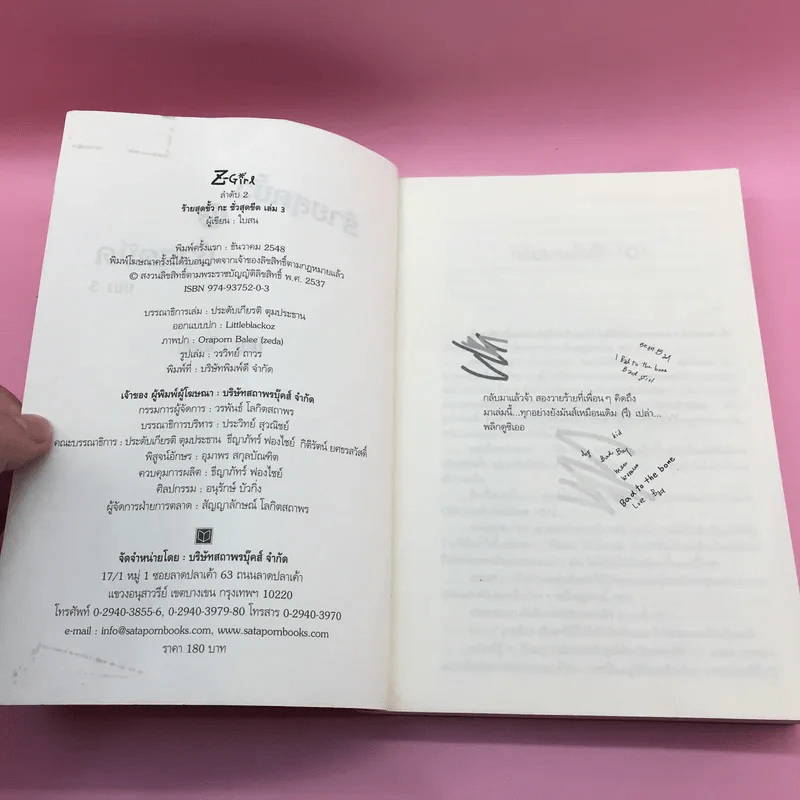 Z-Girl
ลำดับ 2
ร้ายสุดขั้ว กะ ชั่วสุดขีด เล่ม 3
ผู้เขียน : ใบสน
พิมพ์ครั้งแรก : ธันวาคม 2548
พิมพ์โฆษณาครั้งนี้ได้รับอนุญาตจากเจ้าของลิขสิทธิ์ตามกฎหมายแล้ว
© สงวนลิขสิทธิ์ตามพระราชบัญญัติลิขสิทธิ์ พ.ศ. 2537
ISBN 974-93752-0-3
บรรณาธิการเล่ม : ประดับเกียรติ ตุมประธาน
ออกแบบปก : Littleblackoz
ภาพปก : Oraporn Balee (zeda)
รูปเล่ม : วรวิทย์ ถาวร
พิมพ์ที่ : บริษัทพิมพ์ดี จำกัด
เจ้าของ ผู้พิมพ์ผู้โฆษณา : บริษัทสถาพรบุ๊คส์ จำกัด
กรรมการผู้จัดการ : วรพันธ์ โลกิตสถาพร
บรรณาธิการบริหาร : ประวิทย์ สุวณิชย์
คณะบรรณาธิการ : ประดับเกียรติ ตุมประธาน ธีญาภัทร์ ฟองไชย์ กิติรัตน์ ยศธรสวัสดิ์
พิสูจน์อักษร : อุมาพร สกุลบัณฑิต
ควบคุมการผลิต : ธีญาภัทร์ ฟองไชย์
ศิลปกรรม : อนุรักษ์ บัวกิ่ง
ผู้จัดการฝ่ายการตลาด : สัญญาลักษณ์ โลกิตสถาพร
จัดจำหน่ายโดย : บริษัทสถาพรบุ๊คส์ จำกัด
17/1 หมู่ 1 ซอยลาดปลาเค้า 63 ถนนลาดปลาเค้า
แขวงอนุสาวรีย์ เขตบางเขน กรุงเทพฯ 10220
โทรศัพท์ 0-2940-3855-6, 0-2940-3979-80 โทรสาร 0-2940-3970
e-mail : info@satapornbooks.com, www.satapornbooks.com
ราคา 180 บาท
I Bad to the bone
Bad girl
กลับมาแล้วจ้า สองวายร้ายที่เพื่อนๆ คิดถึง
มาเล่มนี้...ทุกอย่างยังมันส์เหมือนเดิม (รึ) เปล่า...
พลิกดูซิเออ
Bad Boy
Bad to the bone